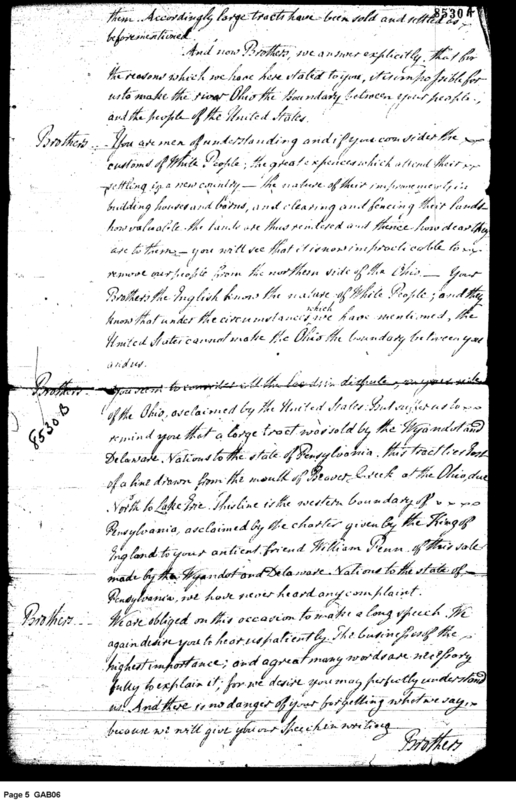 8530A
them. Accordingly large tracts have been sold and settled as
beforementioned.
And now Brothers, we answer explicitly, that for
the reasons which we have here stated to you, it is impossible for
us to make the river Ohio the Boundary between your people,
and the people of the United States.
Brothers. You are men of understanding and if you consider the
customs of White People; the great expences which attend their
settling in a new country — the nature of their improvements, in
building houses and barns, and clearing and fencing their lands —
how valuable the lands are thus rendered and thence how dear they
are to them — you will see that it is now impracticable to
remove our people from the northern side of the Ohio. — Your
Brothers the English know the nature of White People; and they
know that under the circumstances which we have mentioned, the
United States cannot make the Ohio the boundary between you
and us.
Brothers. You seem to consider all the lands in dispute, on your side
8530 B
of the Ohio, as claimed by the United States. But suffer us to
remind you that a large tract was sold by the Wyandot and
Delaware Nations to the state of Pensylvania. this tract lies East
of a line drawn from the mouth of Beaver Creek at the Ohio, due
North to Lake Erie. This line is the western boundary of
Pensylvania, as claimed by the charter given by the King of
England to your antient friend William Penn. of this sale
made by the Wyandot and Delaware Nations to the state of
Pensylvania, we have never heard any complaint.
Brothers. We are obliged on this occasion to make a long speech. We
again desire you to hear us patiently. The business is of the
highest importance; and a great many words are necessary
fully to explain it; for we desire you may perfectly understand
us. And there is no danger of your forgetting what we say,
because we will give you our Speech in writing.
Brothers
Page 5 GAB06